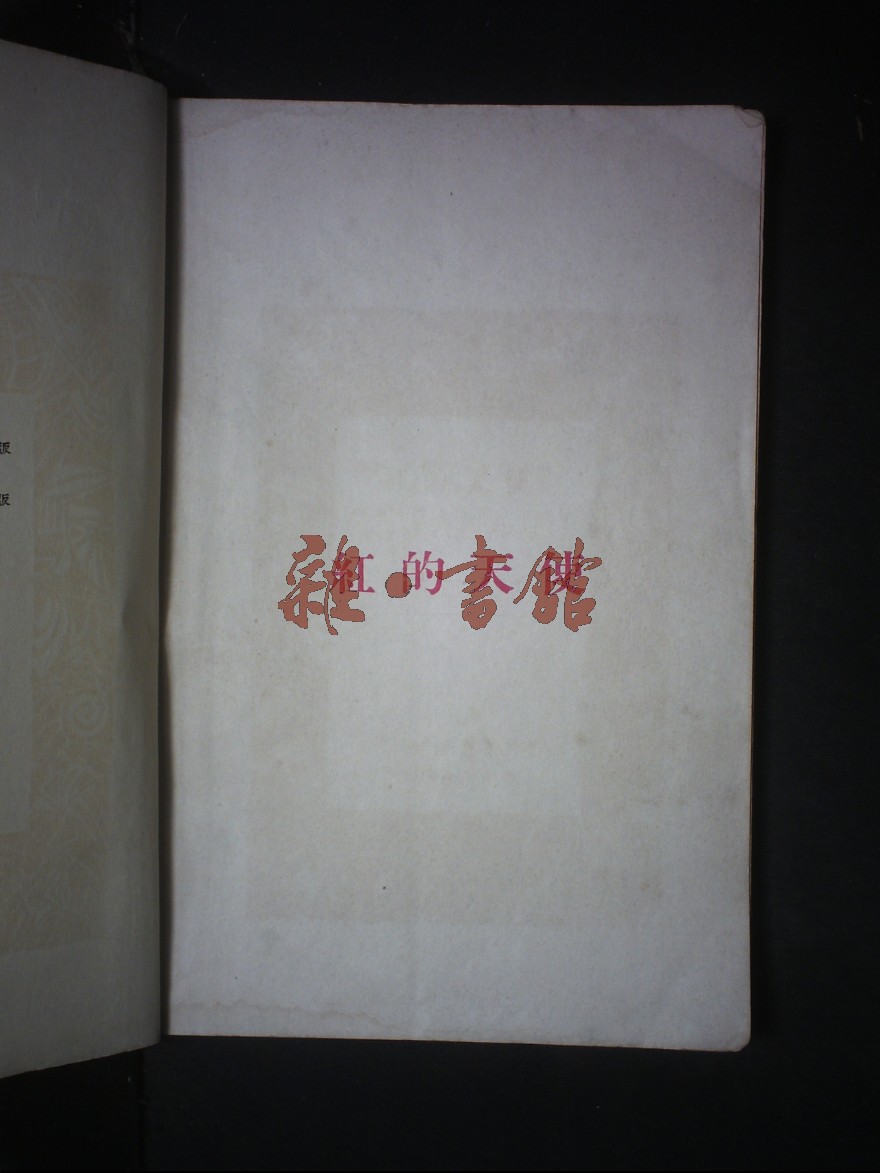 紅的天使
雜·書館
版
版